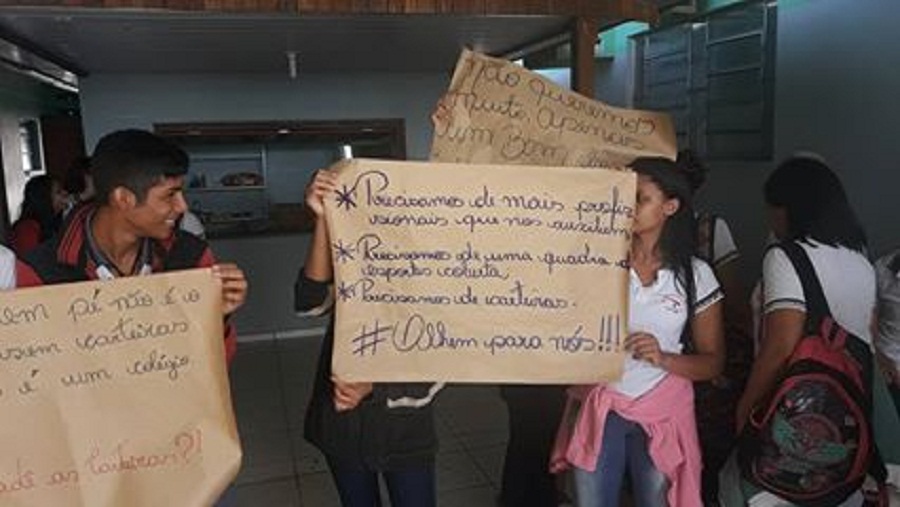 Não queremos
muito, apenas
um bom
* Precisamos de mais profis
sionais que nos auxiliem
* Precisamos de uma quadra de
esportes coberta,
* Precisamos de carteiras.
# Olhem para nós!!!
em pé não é o
sem carteiras
é um colégio
as carteiras?!